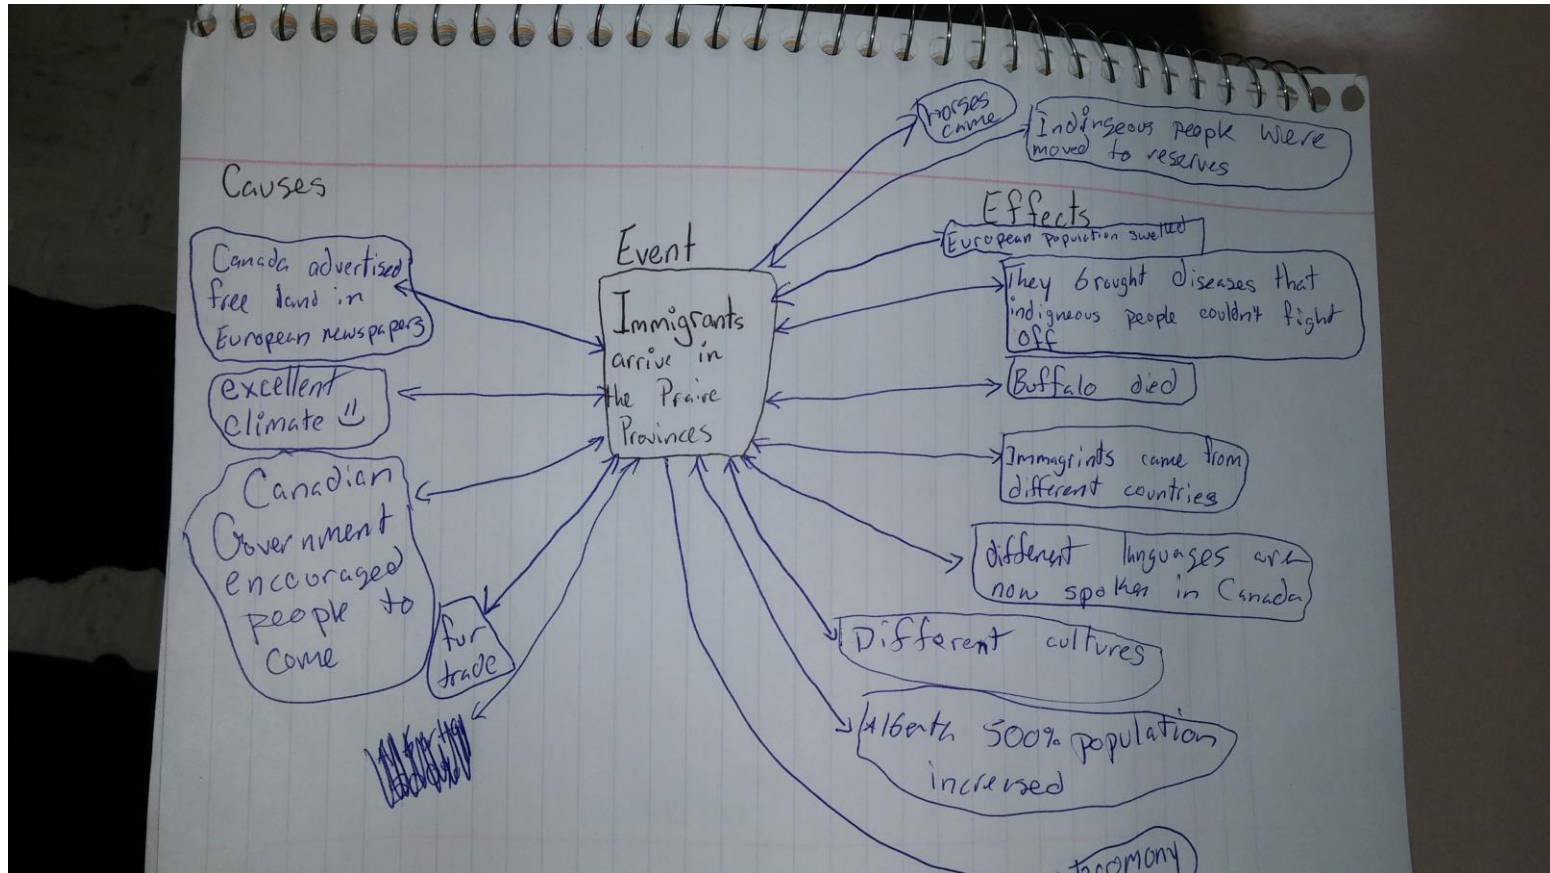 Causes
Canada advertised
free land in
European newspapers
excellent
climate
Canadian
Government
encouraged
people to
come
fur
trade
Event
Immigrants
arrive in
the Praire
Provinces
horses
came
Indingeous people were
moved to reserves
Effects
European population swelled
They brought diseases that
indigneous people couldn't fight
off
Buffalo died
Immagrints came from
different countries
different languages are
now spoken in Canada
Different cultures
500% population
increased